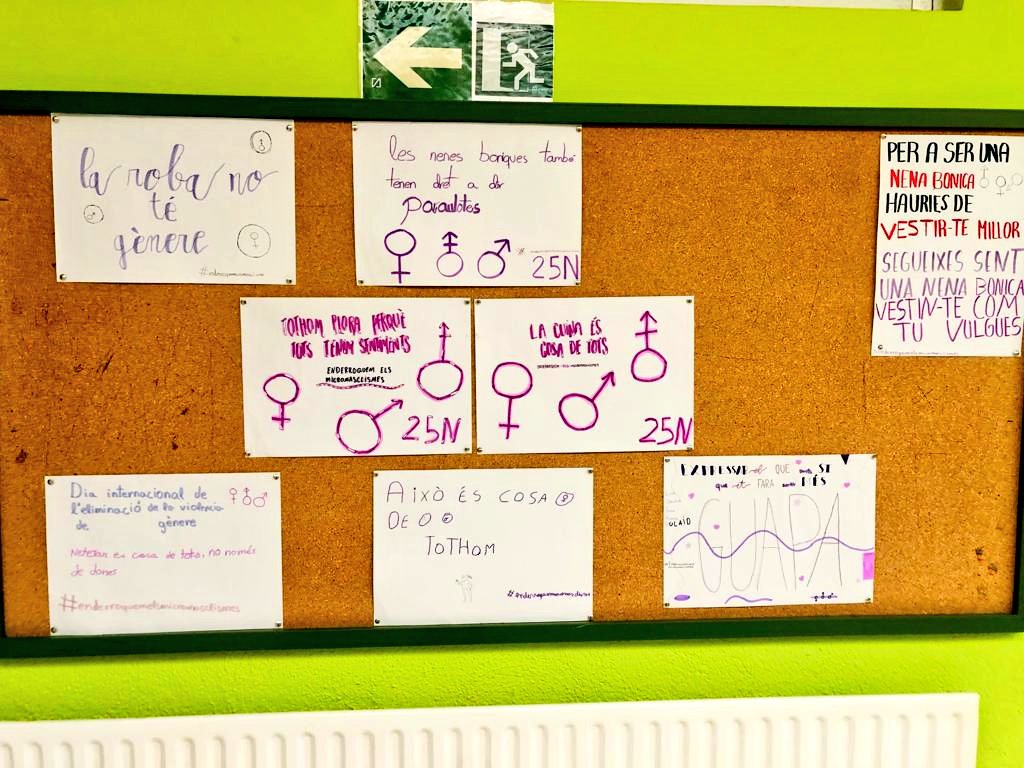 la roba no
té
gènere
Les nenes boniques també
tenen dret a dir
paraulotes
25N
PER A SER UNA
NENA BONICA
HAURIES DE
VESTIR-TE MILLOR
SEGUEIXES SENT
UNA NENA BONICA
VESTIN-TE COM
TU VULGUES
TOTHOM PLORA PERQUÈ
TOTS TENIM SENTIMENTS
ENDERROQUEM ELS
MICROMASCLISMES
25N
LA CUINA ÉS
COSA DE TOTS
25N
Dia internacional de
l'eliminació de la violència
de gènere
Netejar es cosa de tots, no només
de dones
#enderroquemelsmicromasclismes
AIXÒ ÉS COSA
DE
TOTHOM
#enderroquemelsmicromasclismes
EXPRESSAR el QUE SI
que et FARA MÉS
GUAPA